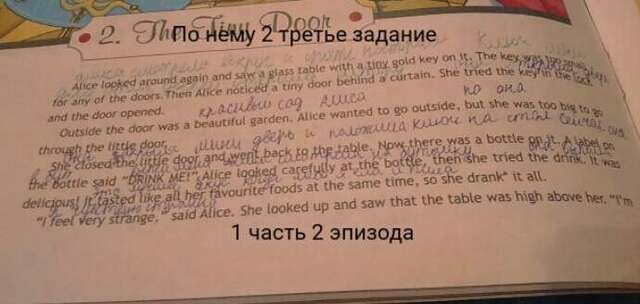 2. The Tiny Door
По нему 2 третье задание
Alice looked around again and saw a glass table with a tiny gold key on it. The key was too small
for any of the doors. Then Alice noticed a tiny door behind a curtain. She tried the key in the lock
and the door opened.
красивый сад алиса но она
Outside the door was a beautiful garden. Alice wanted to go outside, but she was too big to go
through the little door.
мини дверь и положила ключ на стол
She closed the little door and went back to the table. Now there was a bottle on it. A label on
the bottle said "DRINK ME!". Alice looked carefully at the bottle, then she tried the drink. It was
delicious! It tasted like all her favourite foods at the same time, so she drank* it all.
"I feel very strange," said Alice. She looked up and saw that the table was high above her. "I'm
1 часть 2 эпизода